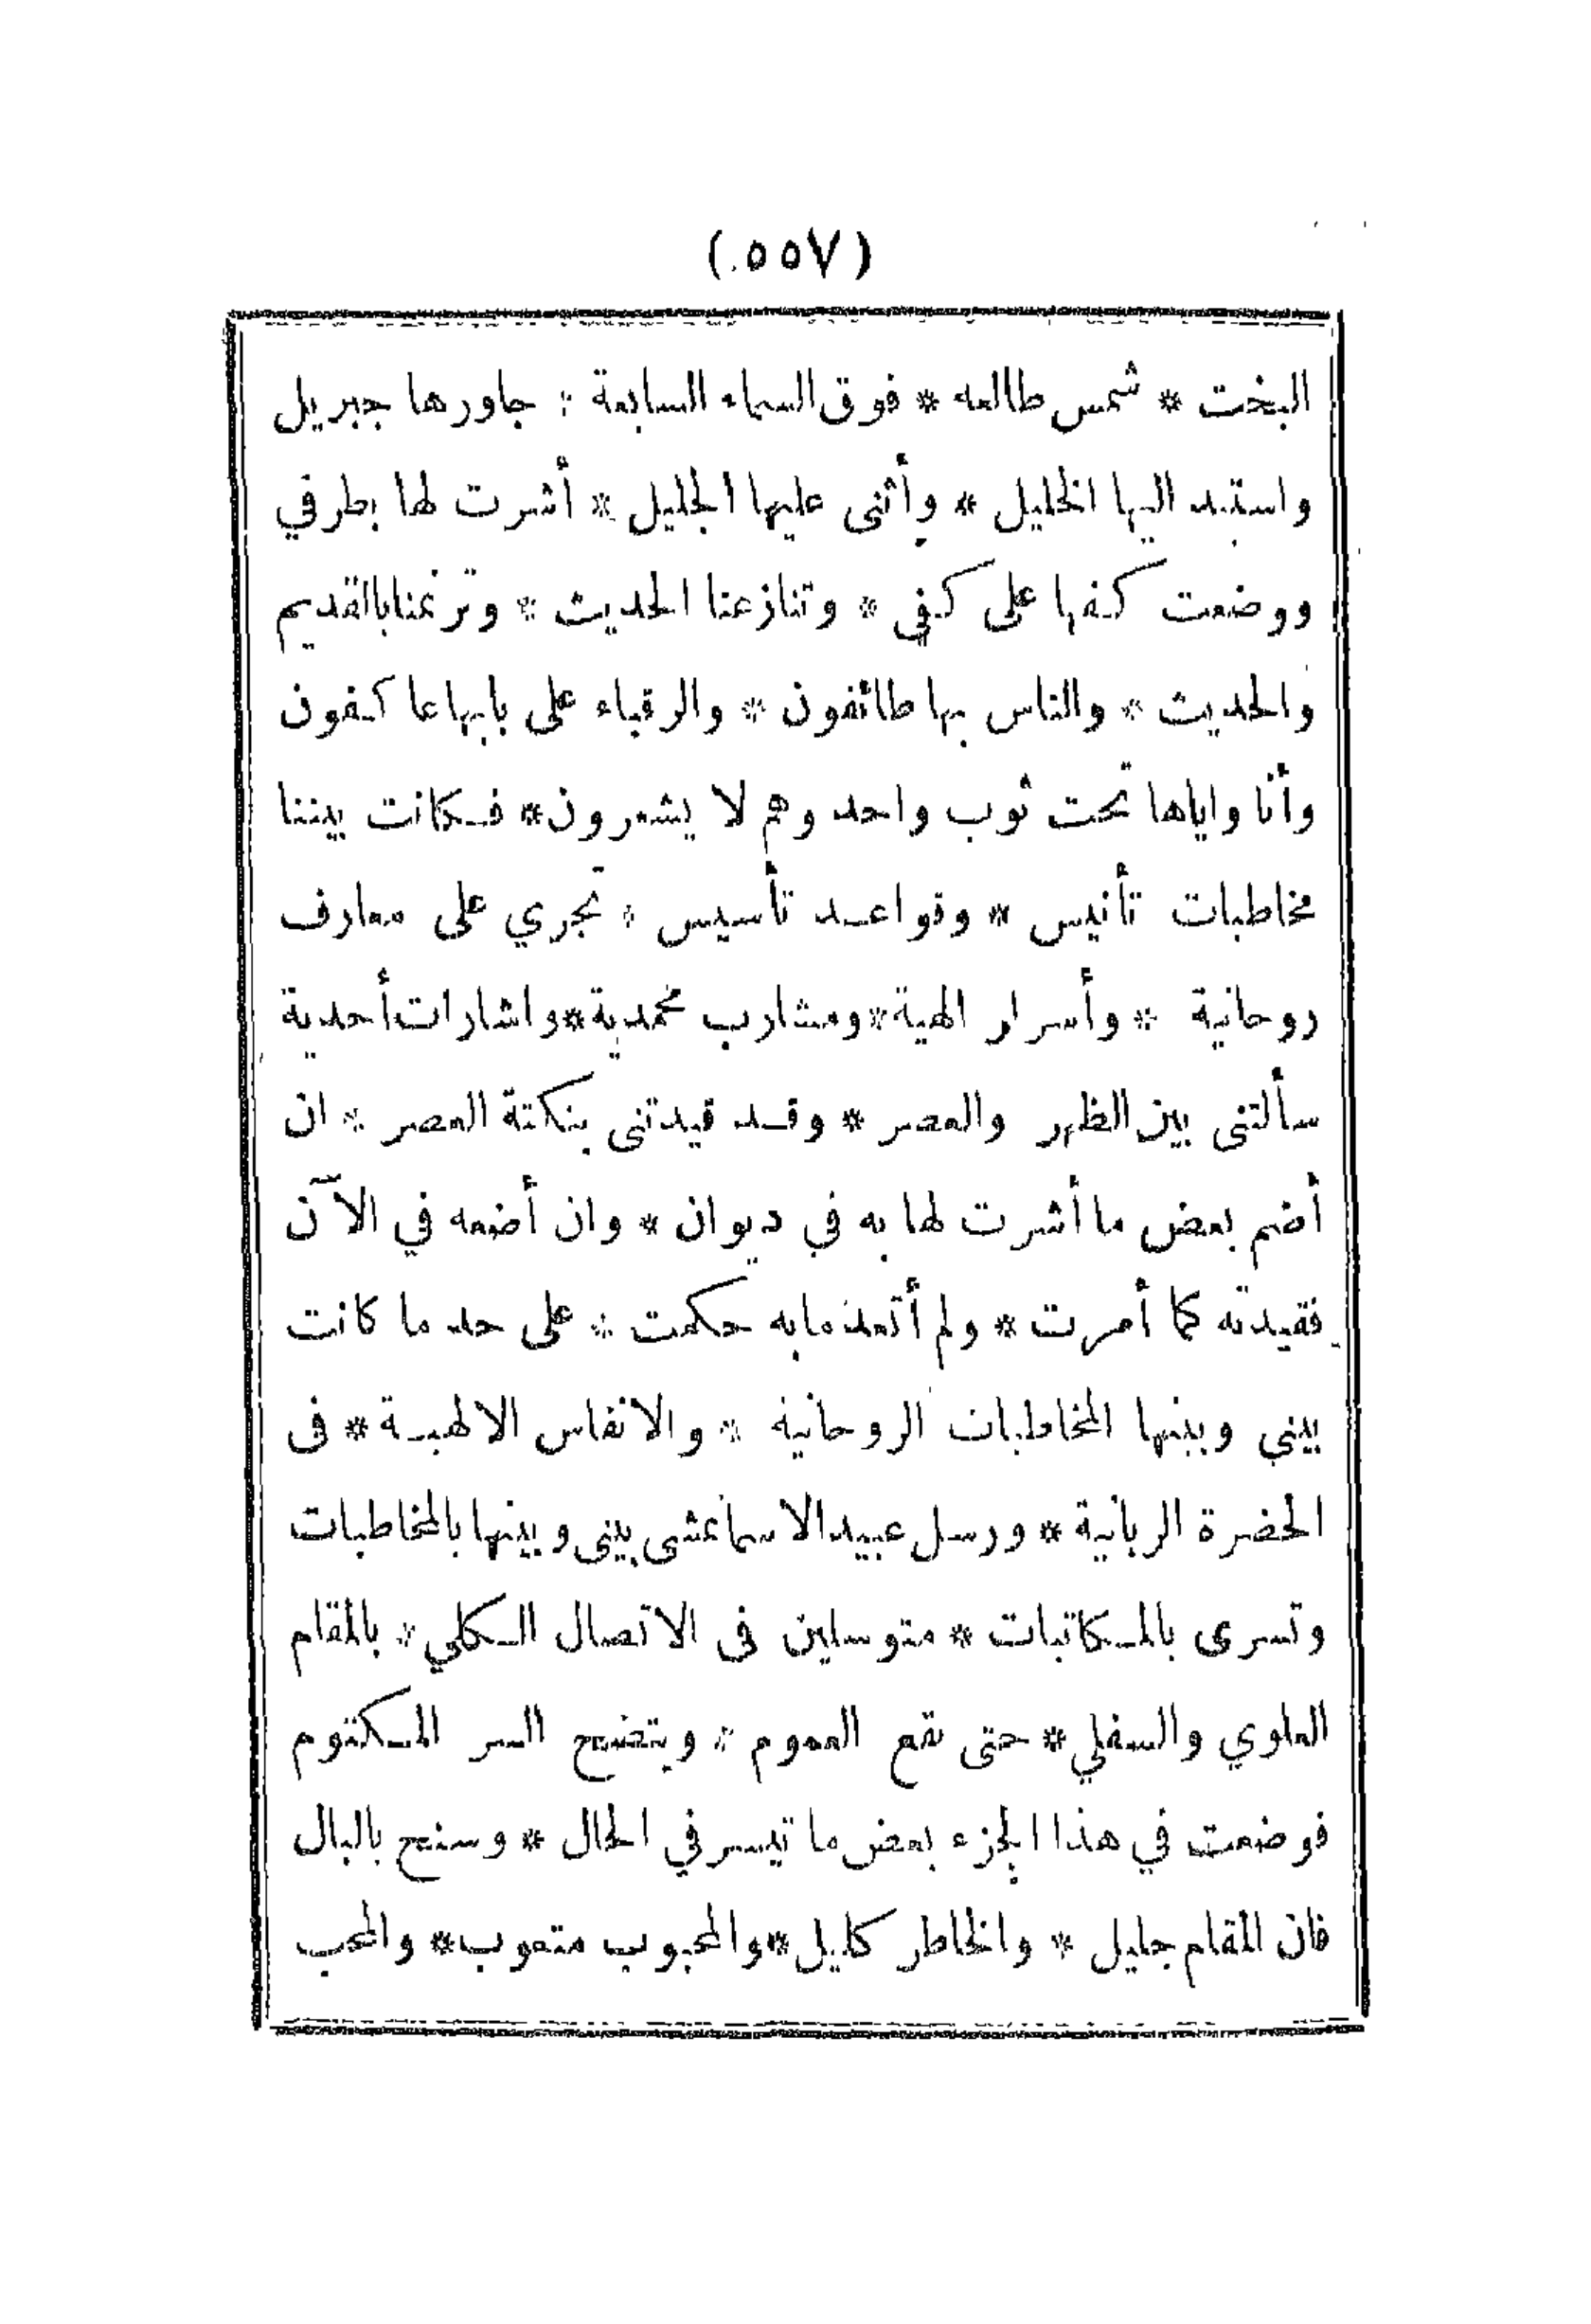 (٥٥٧)
البخت * شمس طالعه * فوق السماء السابعة * جاورها جبريل
واستبد اليها الخليل * وأثنى عليها الجليل * أشرت لها بطرفي
ووضعت كفها على كفي * وتنازعنا الحديث * وترنمنا بالقديم
والحديث * والناس بها طائفون * والرقباء على بابها عاكفون
وأنا واياها تحت ثوب واحد وهم لا يشعرون * فكانت بيننا
مخاطبات تأنيس * وقواعد تأسيس * تجري على معارف
روحانية * وأسرار الهية * ومشارب محمدية * واشارات أحدية
سألتني بين الظهر والعصر * وقد قيدتني بنكتة العصر * ان
أضم بعض ما أشرت لها به في ديوان * وان أضعه في الآن
فقيدته كما أمرت * ولم أتعد ما به حكمت * على حد ما كانت
بيني وبينها المخاطبات الروحانية * والانفاس الالهية * فى
الحضرة الربانية * ورسل عبيد الاسما تمشى بيني وبينها بالمخاطبات
وتسرى بالمكاتبات * متوسلين فى الاتصال الكلي * بالمقام
العلوي والسفلي * حتى يقع العموم * ويتضح السر المكتوم
فوضعت في هذا الجزء بعض ما تيسر في الحال * وسنح بالبال
فان المقام جليل * والخاطر كليل * والمحبوب متعوب * والمحب